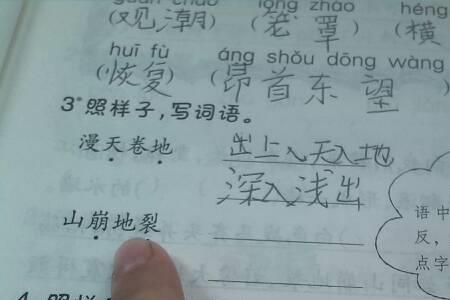 guān cháo lóng zhào héng
(观潮) (笼罩) (横
huī fù áng shǒu dōng wàng
(恢复) (昂首东望 )
3.照样子,写词语。
漫天卷地 出上入天入地
深入浅出
山崩地裂
语中
反,
点字